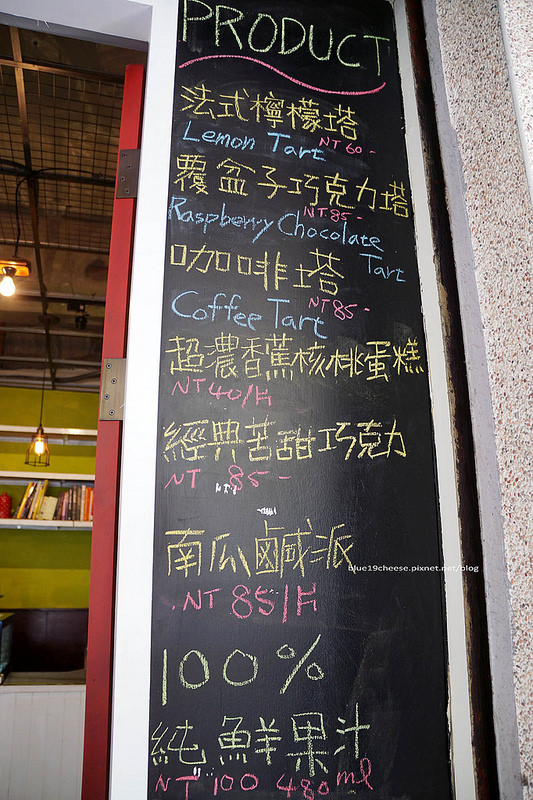 PRODUCT
法式檸檬塔
Lemon Tart NT 60-
覆盆子巧克力塔
NT.85-
Raspberry Chocolate
Tart
咖啡塔
NT85-
Coffee Tart
超濃香蕉核桃蛋糕
NT40/片
經典苦甜巧克力
NT 85-
南瓜鹹派
blue19cheese.pixnet.net/blog
NT 85/片
100%
純鮮果汁
NT 100 480ml